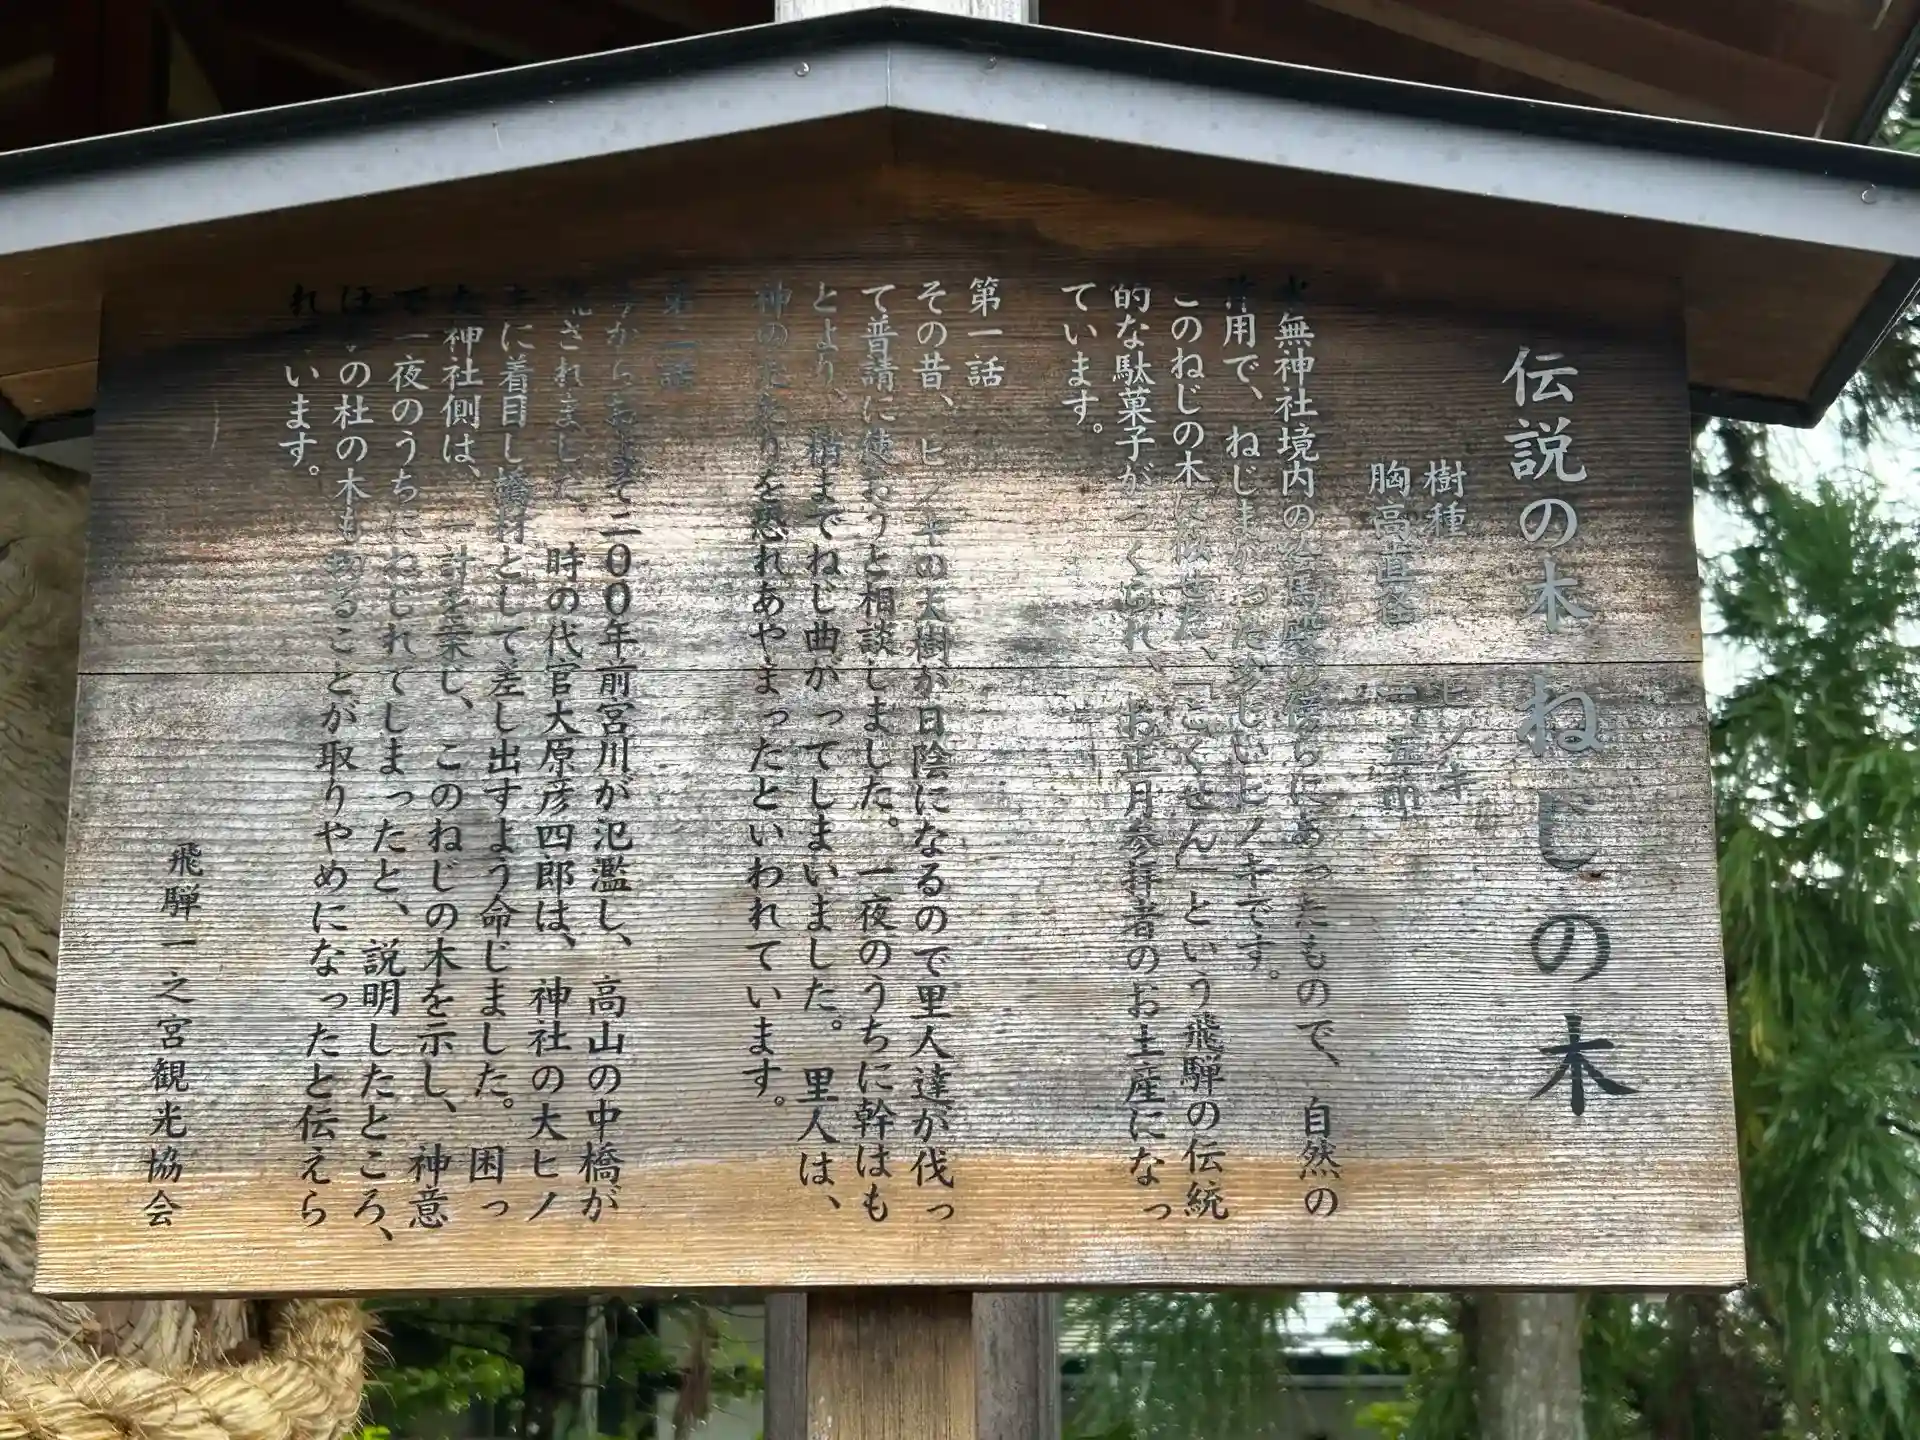 伝説の木 ねじの木
樹種 ヒノキ
胸高直径 一・五m
水無神社境内の絵馬殿の傍らにあったもので、自然の
作用で、ねじまがった珍しいヒノキです。
このねじの木に似せた、「こくせん」という飛騨の伝統
的な駄菓子がつくられ、お正月参拝者のお土産になっ
ています。
第一話
その昔、ヒノキの大樹が日陰になるので里人達が伐っ
て普請に使おうと相談しました。一夜のうちに幹はも
とより、梢までねじ曲がってしまいました。里人は、
神のたたりを恐れあやまったといわれています。
第二話
今からおよそ二〇〇年前宮川が氾濫し、高山の中橋が
流されました。時の代官大原彦四郎は、神社の大ヒノ
キに着目し橋材として差し出すよう命じました。困っ
た神社側は、一計を案じ、このねじの木を示し、神意
で一夜のうちにねじれてしまったと、説明したところ、
の杜の木も切ることが取りやめになったと伝えら
れています。
飛騨一之宮観光協会